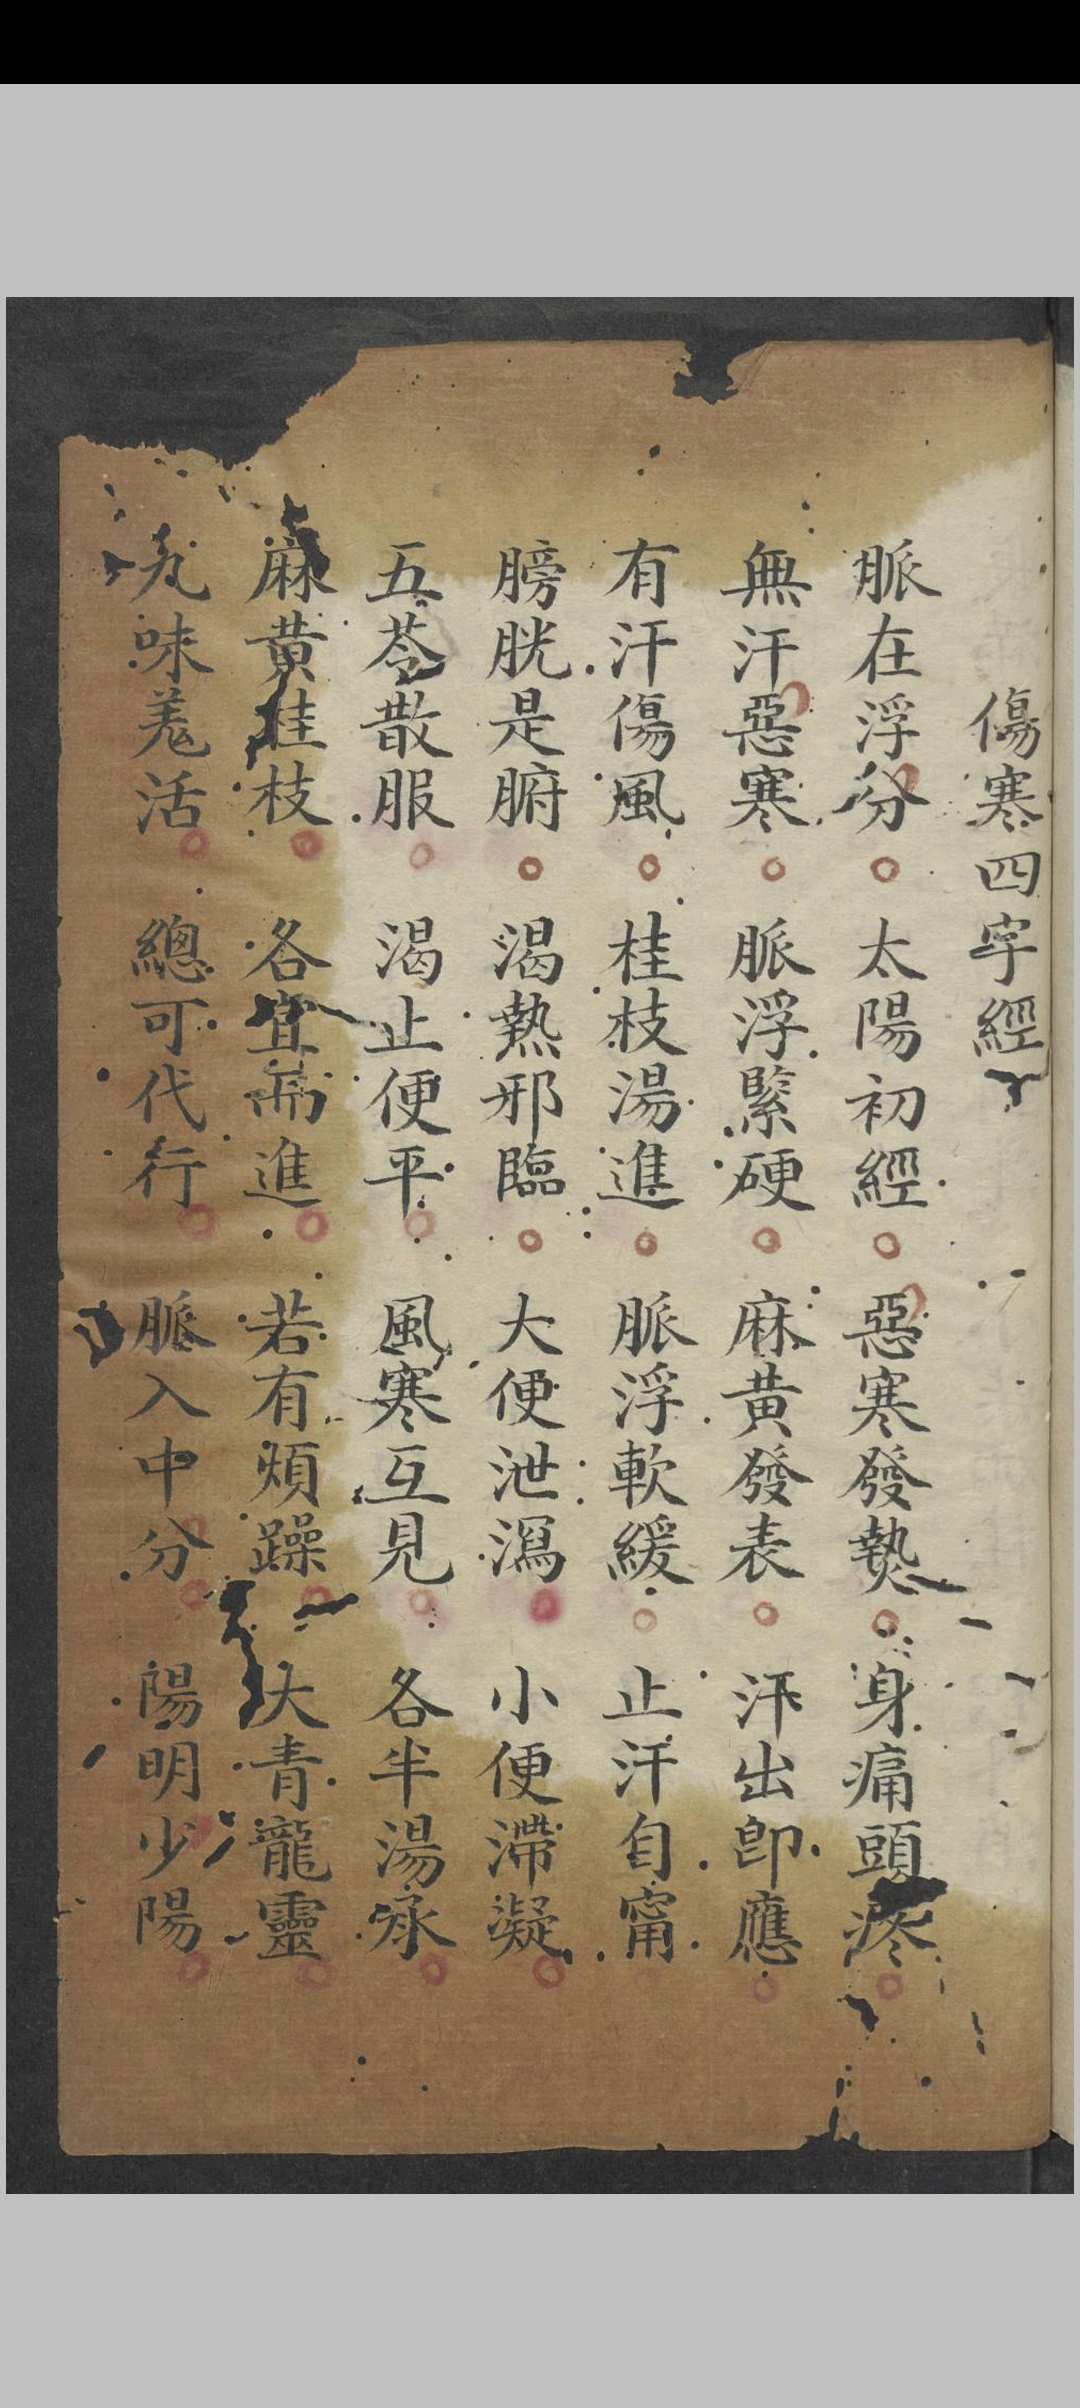 傷寒四字經
脈在浮分 太陽初經 惡寒發熱 身痛頭疼
無汗惡寒 脈浮緊硬 麻黃發表 汗出即應
有汗傷風 桂枝湯進 脈浮軟緩 止汗自甯
膀胱是腑 渴熱邪臨 大便泄瀉 小便滯凝
五苓散服 渴止便平 風寒互見 各半湯承
麻黃桂枝 各宜而進 若有煩躁 大青龍靈
九味羌活 總可代行 脈入中分 陽明少陽